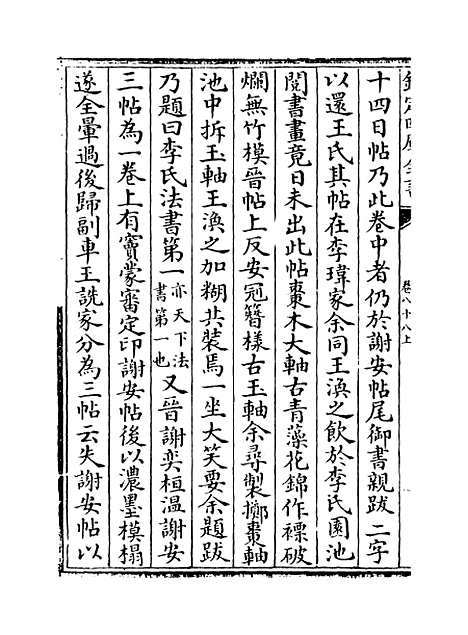 欽定四庫全書
卷八十八上
十四日帖乃此卷中者仍於謝安帖尾御書親跋二字
以還王氏其帖在李瑋家余同王渙之飲於李氏園池
閱書畫竟日未出此帖棗木大軸古青藻花錦作褾破
爛無竹模晉帖上反安冠簪樣古玉軸余尋製擲棗軸
池中拆玉軸王渙之加糊共裝焉一坐大笑要余題跋
乃題曰李氏法書第一亦天下法書第一也又晉謝奕桓温謝安
三帖為一卷上有竇蒙審定印謝安帖後以濃墨模搨
遂全暈過後歸副車王詵家分為三帖云失謝安帖以